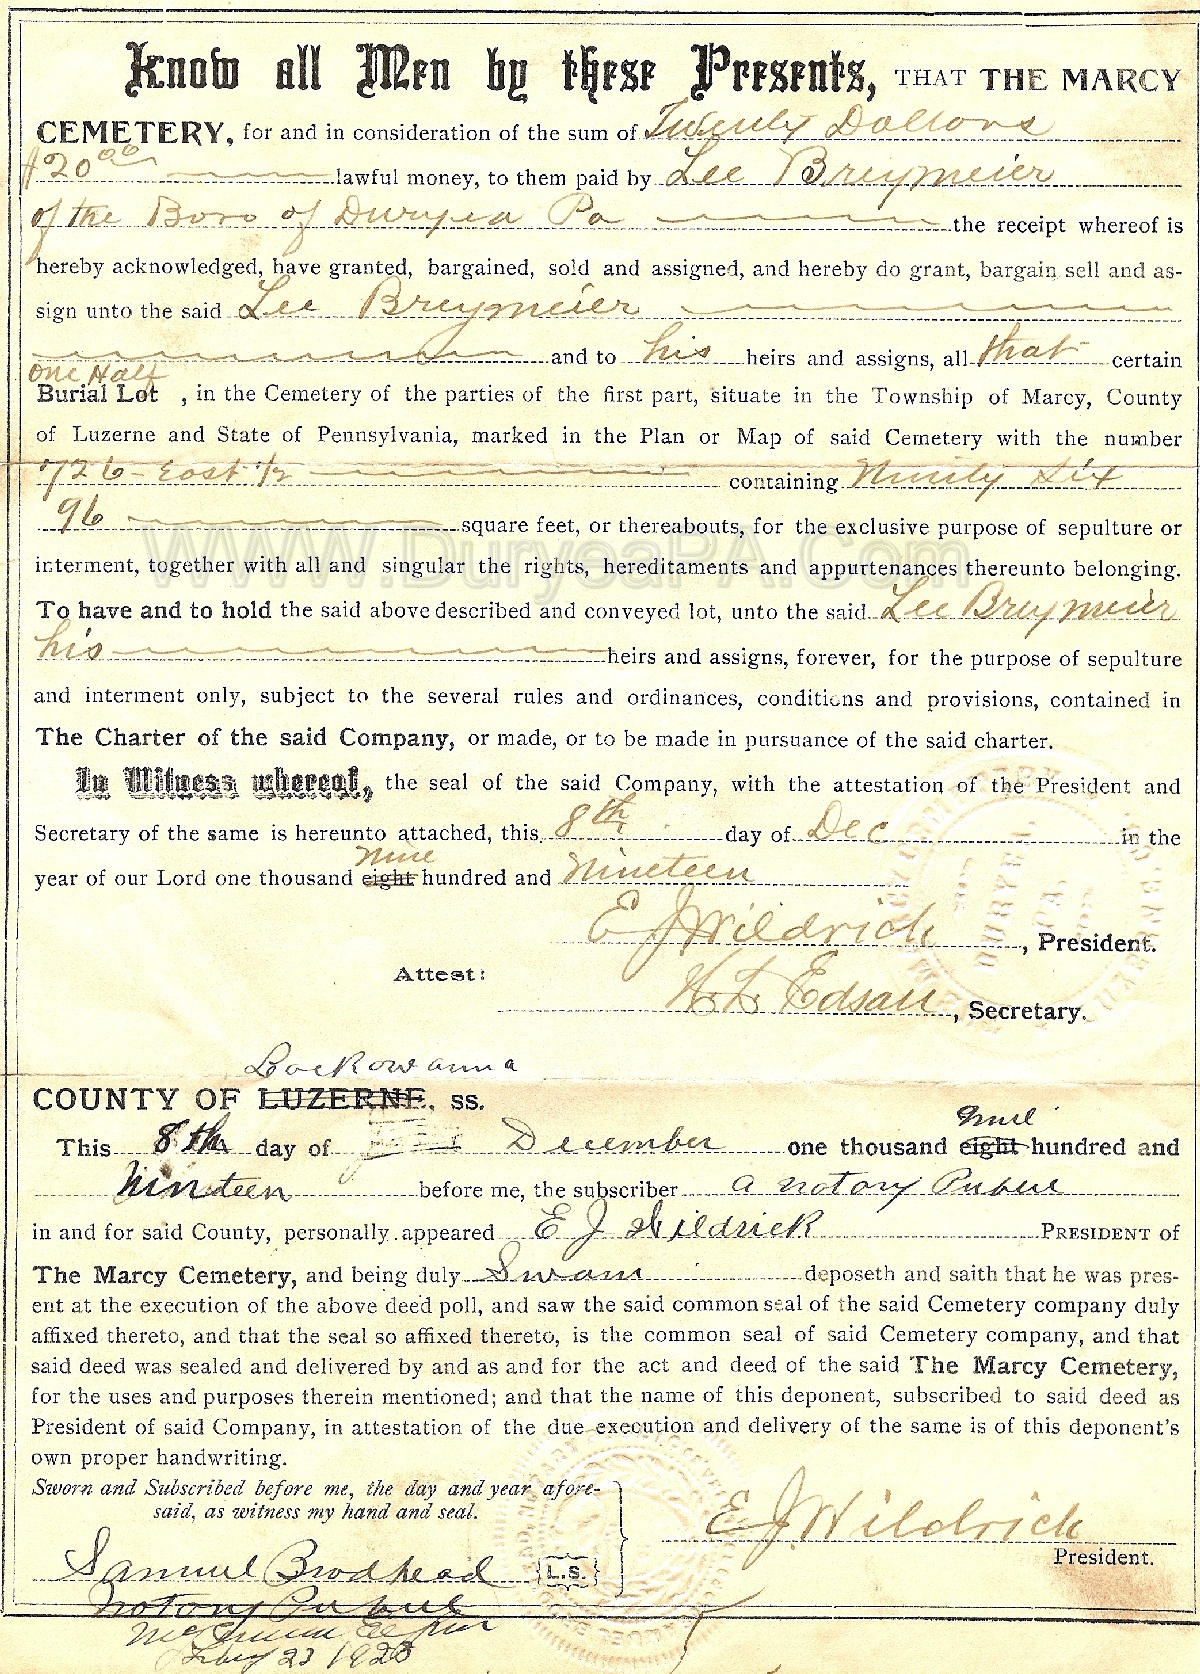 Know all Men by these Presents, THAT THE MARCY
CEMETERY, for and in consideration of the sum of Twenty Dollors
$20.00 lawful money, to them paid by Lee Breymeier
of the Boro of Duryea Pa the receipt whereof is
hereby acknowledged, have granted, bargained, sold and assigned, and hereby do grant, bargain sell and as-
sign unto the said Lee Breymeier
and to his heirs and assigns, all that certain
One Half
Burial Lot , in the Cemetery of the parties of the first part, situate in the Township of Marcy, County
of Luzerne and State of Pennsylvania, marked in the Plan or Map of said Cemetery with the number
726 - East 1/2 containing Ninity Six
96 square feet, or thereabouts, for the exclusive purpose of sepulture or
WWW.DuryeaPA.Com
interment, together with all and singular the rights, hereditaments and appurtenances thereunto belonging.
To have and to hold the said above described and conveyed lot, unto the said Lee Breymeier
his heirs and assigns, forever, for the purpose of sepulture
and interment only, subject to the several rules and ordinances, conditions and provisions, contained in
The Charter of the said Company, or made, or to be made in pursuance of the said charter.
In Witness whereof, the seal of the said Company, with the attestation of the President and
Secretary of the same is hereunto attached, this 8th day of Dec in the
nine
year of our Lord one thousand eight hundred and Nineteen
E J Wildrick, President.
Attest:
H. L. Edsall, Secretary.
Lackowanna
COUNTY OF LUZERNE, ss.
nine
This 8th day of December one thousand eight hundred and
Nineteen before me, the subscriber a notary Public
in and for said County, personally appeared E J Wildrick PRESIDENT of
The Marcy Cemetery, and being duly Sworn deposeth and saith that he was pres-
ent at the execution of the above deed poll, and saw the said common seal of the said Cemetery company duly
affixed thereto, and that the seal so affixed thereto, is the common seal of said Cemetery company, and that
said deed was sealed and delivered by and as and for the act and deed of the said The Marcy Cemetery,
for the uses and purposes therein mentioned; and that the name of this deponent, subscribed to said deed as
President of said Company, in attestation of the due execution and delivery of the same is of this deponent's
own proper handwriting.
Sworn and Subscribed before me, the day and year afore-
said, as witness my hand and seal.
E J Wildrick
President.
Samuel Brodhead L.S.
Notary Public
23 1923